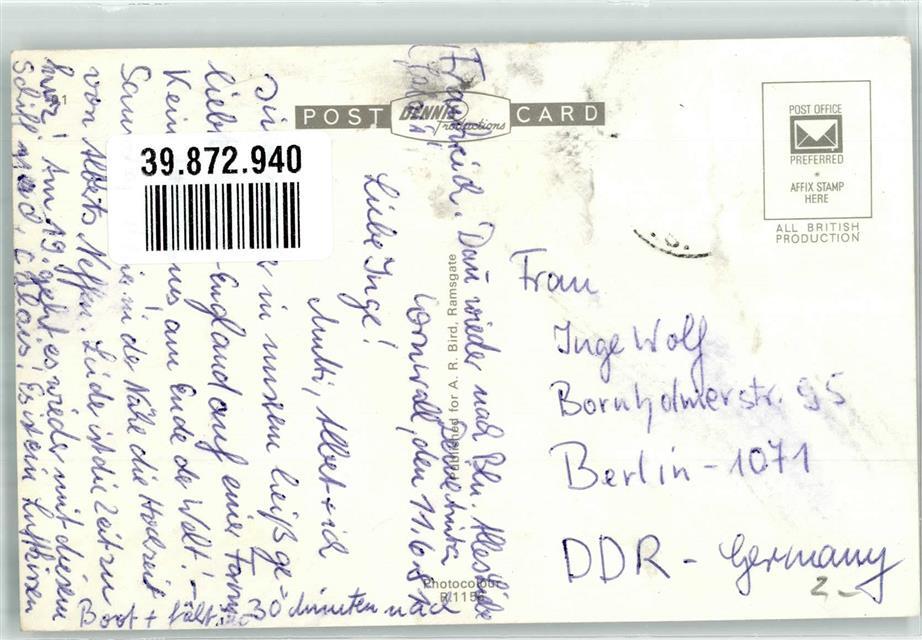 POST CARD
DENNIS
Productions
POST OFFICE
PREFERRED
AFFIX STAMP
HERE
ALL BRITISH
PRODUCTION
39.872.940
Published for A. R. Bird, Ramsgate
Photocolour
Frau
Inge Wolf
Bornholmerstr. 95
Berlin-1071
DDR - Germany
Cornwall, den 11.6.
Liebe Inge!
Mutti, Albert + ich
in unserem heißge-
liebten England auf einer Farm
Kein am Ende der Welt! -
in der Nähe die Hochzeit
von Alberts Neffen. Leider ist die Zeit zu
kurz! Am 19. geht es wieder mit diesem
Schiff nach Es ist ein Luftkissen
Boot + fährt 30 Minuten nach
Frankreich. Dann wieder nach Bln. Alles Liebe
Deine
2-